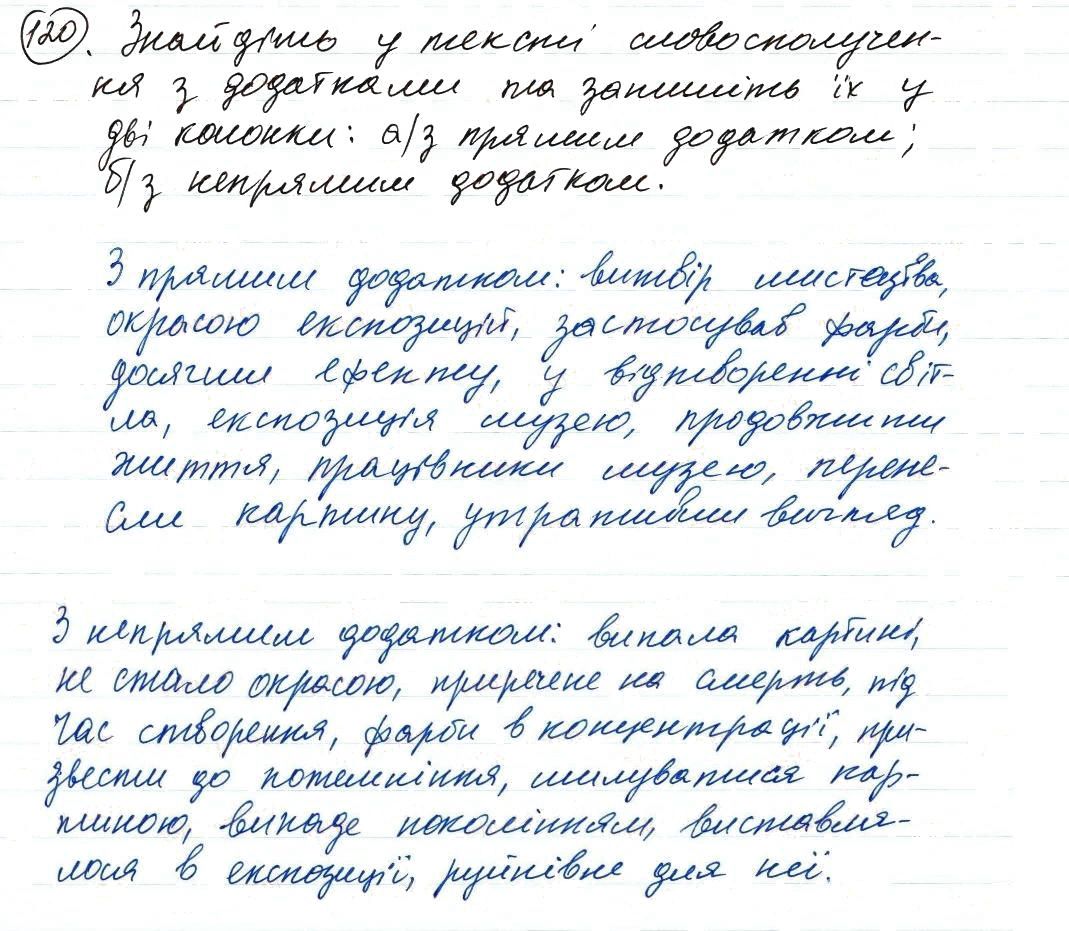 120. Знайдіть у тексті словосполучен-
ня з додатками та запишіть їх у
дві колонки: а/з прямим додатком;
б/з непрямим додатком.
З прямим додатком: витвір мистецтва,
окрасою експозицій, застосував фарби,
досягши ефекту, у відтворенні світ-
ла, експозиція музею, продовжити
життя, працівники музею, перене-
сли картину, утративши вигляд.
З непрямим додатком: випала картині,
не стало окрасою, приречене на смерть, під
час створення, фарби в концентрації, при-
звести до потемніння, милуватися кар-
тиною, випаде поколінням, виставля-
лося в експозиції, руйнівне для неї.